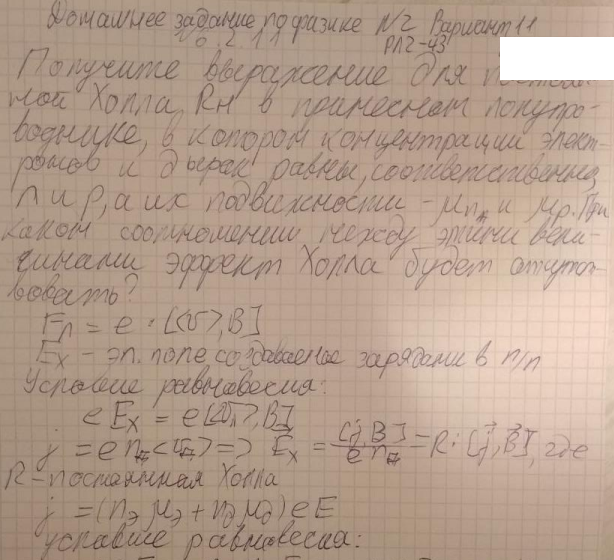 Домашнее задание по физике №2 Вариант 11
№ 6.2.11 РЛ2-43
Получите выражение для постоян
ной Холла Rн в примесном полупро-
воднике, в котором концентрации элект-
ронов и дырок равны, соответственно,
n и p, а их подвижности - μn и μp. При
каком соотношении между этими вели-
чинами эффект Холла будет отсутст-
вовать?
Fл = e · [<v>, B]
Ex - эл. поле создаваемое зарядами в п/п
Условие равновесия:
e Ex = e[<v>, B]
j = e n <v> => Ex = [j, B] / e n = R · [j, B], где
R - постоянная Холла
j = (nэ μэ + nд μд) e E
условие равновесия: